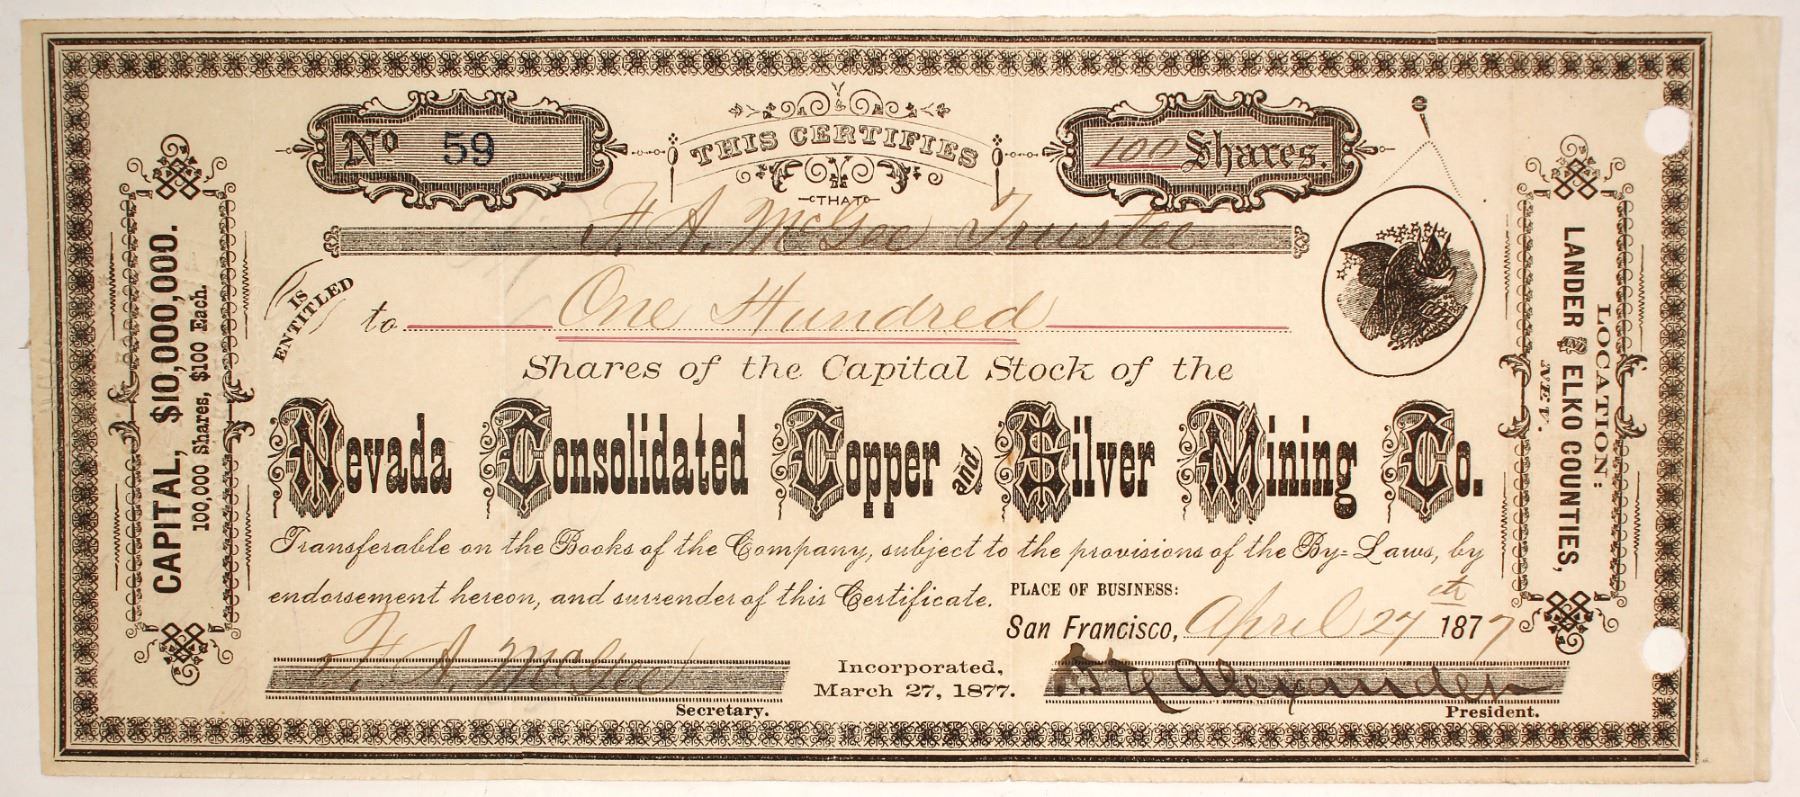 No 59
THIS CERTIFIES
100 Shares.
THAT
F. A. McGee Trustee
IS ENTITLED
to One Hundred
Shares of the Capital Stock of the
Nevada Consolidated Copper and Silver Mining Co.
Transferable on the Books of the Company, subject to the provisions of the By-Laws, by
endorsement hereon, and surrender of this Certificate.
PLACE OF BUSINESS:
San Francisco, April 27th 1877
F. A. McGee
Secretary.
Incorporated,
March 27, 1877.
Alexander
President.
CAPITAL, $10,000,000.
100,000 Shares, $100 Each.
LOCATION:
LANDER AND ELKO COUNTIES,
NEV.